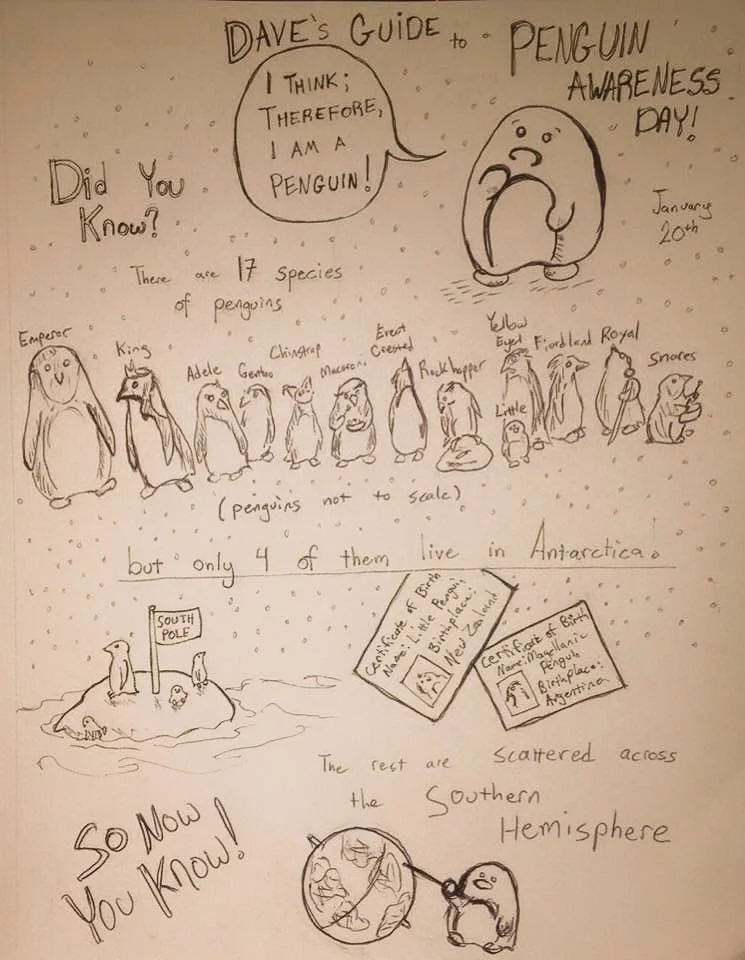 DAVE'S GUIDE to PENGUIN
AWARENESS
DAY!
I THINK;
THEREFORE,
I AM A
PENGUIN!
January
20th
Did You
Know?
There are 17 species
of penguins
Emperor
King
Adele
Gentoo
Chinstrap
Macaroni
Erect
Crested
Rockhopper
Yellow
Eyed
Little
Fiordland
Royal
Snares
(penguins not to scale)
but only 4 of them live in Antarctica.
SOUTH
POLE
Certificate of Birth
Name: Little Penguin
Birthplace:
New Zealand
Certificate of Birth
Name: Magellanic
Penguin
Birthplace:
Argentina
The rest are scattered across
the Southern
Hemisphere
SO NOW
YOU KNOW!